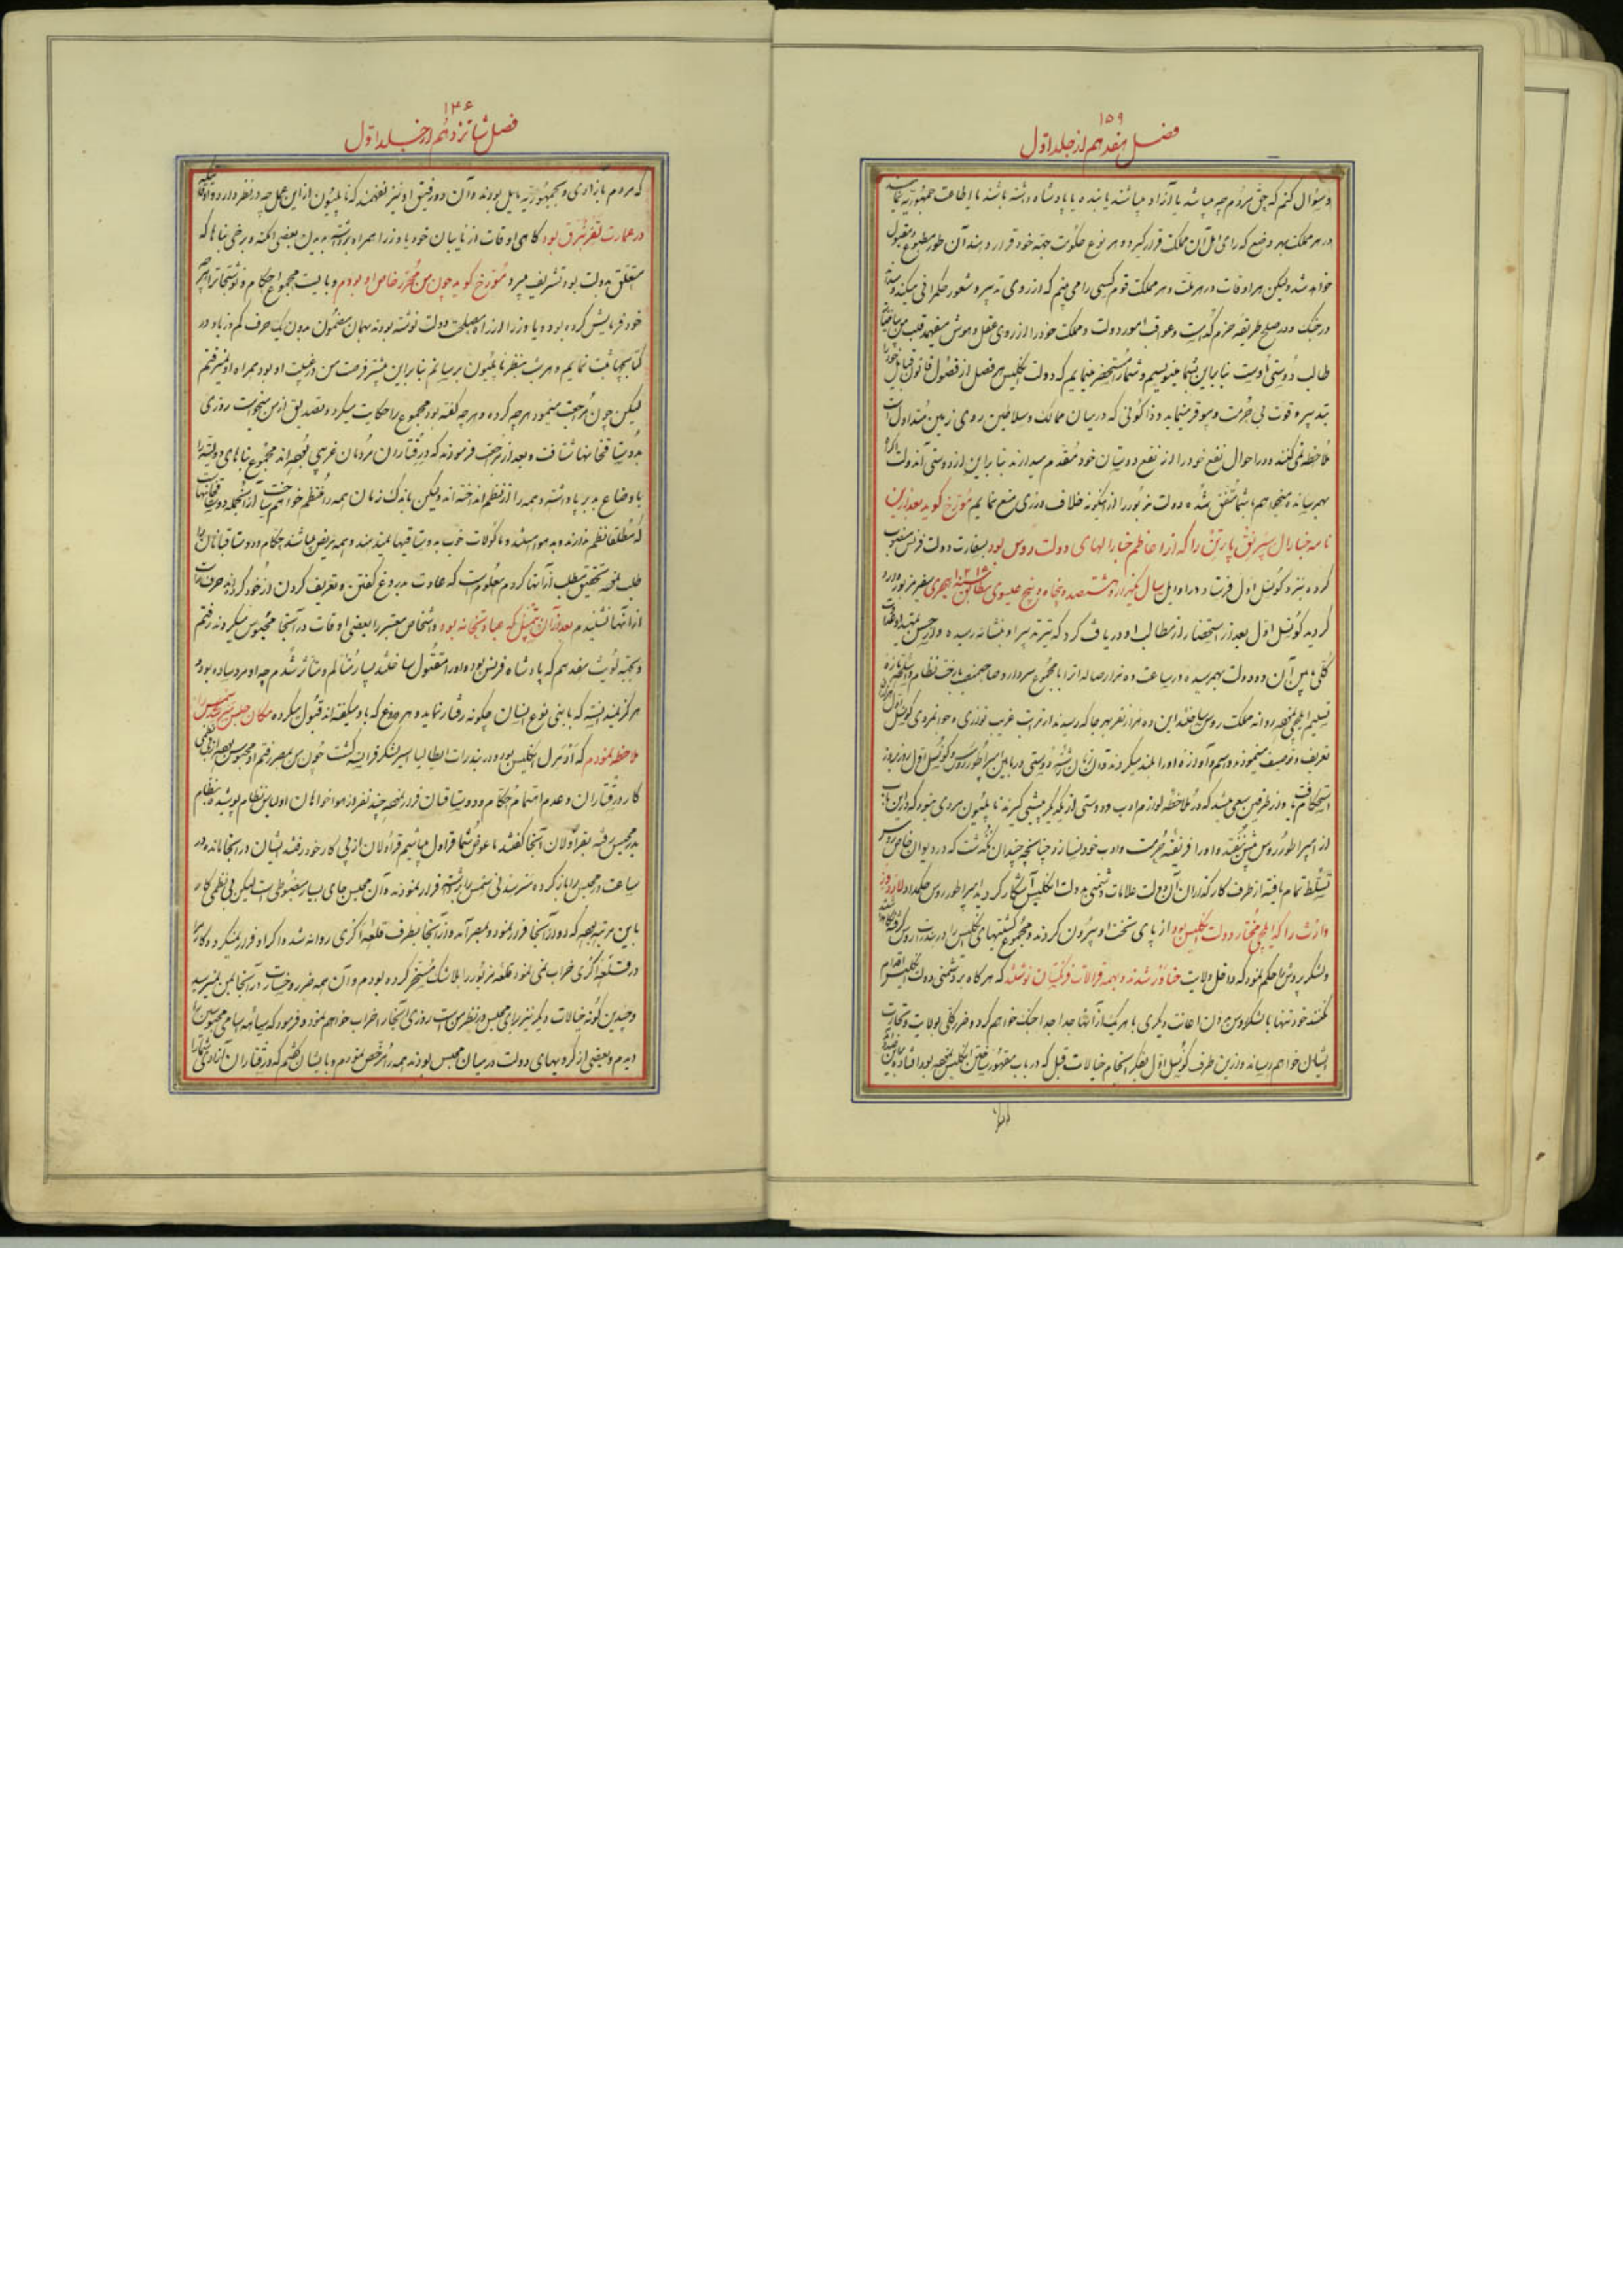 ۱۵۹
فصل هفدهم از جلد اول
و سؤال کنم که حق مردم چه میباشد یا آزاد میباشند یا بنده یا پادشاه داشته باشند یا اطاعت جمهوریه نمایند
در هر مملکت بهر وضع که رای اهل آن مملکت قرار گیرد و هر نوع حکومت جهة خود قرار دهند آن طور مطبوع و مقبول
خواهد شد ولیکن هر اوقات در هر ملت و هر مملکت قوم کسی را می بینم که از روی تدبیر و شعور حکمرانی میکند و
در جنک و در صلح طریقه حزم و عواقب امور دولت و مملکت خود را از روی عقل و هوش میفهمد قلب من
طالب دوستی اوست بنابراین بشما مینویسم و شما را مستحضر مینمایم که دولت انکلیس هر فصل از فصول قانون
بتدبیر و قوت بی حرمت و موقر مینماید و ذاکونی که در میان ممالک و سلاطین روی زمین متداول است
ملاحظه نمی کنند و در احوال نفع خود را از نفع دوستان خود مقدم میدارند بنابراین از دوستی آن دولت
بهمرسانده میخواهم با شما متفق شده دولت مزبور را از اینگونه خلاف ورزی منع نمایم مورخ کوید بعد ازین
نامه جنارال را که از اعاظم جنارالهای دولت روس بود بسفارت دولت فرانس منصوب
کرده نزد کونسل اول فرستاد در اوایل سال یکهزار و هشتصد و پنجاه و پنج عیسوی مطابق سنه ۱۲۱۵ هجری سفیر مزبور وارد
کردید کونسل اول بعد از استحضار از مطالب او دریافت کرد که تیر تدبیر او بنشانه رسیده و از حسن
کلی بین آن دو دولت بهمرسیده در ساعت ده هزار صالدات را با مجموع سردار و صاحبمنصب با رخت نظام و اسلحه تازه
تسلیم ایلچی نمود روانه مملکت روس ساختند این ده هزار نفر بهر جا که رسیدند از تربیت غریب نوازی و جوانمردی کونسل اول
تعریف و توصیف مینمودند و اسم و آوازه او را بلند میکردند و آن زمان رشته دوستی در مابین امپراطور روس و کونسل اول روز بروز
استحکام یافت و از طرفین سعی میشد که در ملاحظه لوازم ادب و دوستی از یکدیگر پیشی گیرند ناپلیون مردی نبود که در این باب
از امپراطور روس پیش نیفتد و او را فریفته حرمت و ادب خود نسازد چنانچه چندان نگذشت که در دیوان خاص روس
تسلط تمام یافته از طرف کارگذاران آن دولت علامات دشمنی دولت انکلیس آشکار کردید امپراطور روس حکم داد لارد
را که ایلچی مختار دولت انکلیس بود از پای تخت او بیرون کردند و مجموع کشتیهای انکلیس را در بندرات روس
و لشکر بروس حکم نمود که داخل ولایت شدند و بهمه قرالات فرنکستان نوشتند که هر کاه بر دشمنی دولت انکلیس اقدام
نکنند خود تنها با لشکر روس بدون اعانت دیگری با هر یک از آنها جدا جدا جنک خواهم کرد و ضرر کلی بولایت و تجارت
ایشان خواهم رساند و ازین طرف کونسل اول بفکر انجام خیالات قبل که در باب مقهور ساختن انکلیس بود افتاد
۱۴۶
فصل شانزدهم از جلد اول
که مردم بآزادی و بجمهوریه مایل بودند و آن دو رفیق او نیز نفهمیدند که ناپلیون از این عمل چه در نظر دارد و
در عمارت بود کاهی اوقات از نایبان خود یا وزرا همراه برداشته بدیدن بعضی امکنه و برخی بناها که
متعلق بدولت بود تشریف میبرد مورخ کوید چون من محرر خاص او بودم و بایست مجموع احکام و نوشتجات را
خود فرمایش کرده بود و یا وزرا از راه مصلحت دولت نوشته بودند بهمان مضمون بدون یک حرف کم و زیاد در
کتابچها ثبت نمایم و هر شب بنظر ناپلیون برسانم بنابراین بیشتر فرصت من در غیبت او بود همراه او نمیرفتم
لیکن چون مراجعت مینمود هر چه کرده و هر چه گفته بود مجموع را حکایت میکرد و تصدیق از من میخواست روزی
بدوستاقخانها شتافت و بعد از مراجعت فرمودند که درفتاران مردمان غریبی بوده اند مجموع بناهای دولتی را
باوضاع بد برپا داشته و همه را از نظم انداخته اند ولیکن باندک زمان همه را منظم خواهم ساخت از آنجمله دوستاقخانها
که مطلقا نظم ندارند و بد هوا میباشند و ماکولات خوب بدوستاقیها نمیدهند و همه مریض میباشند حکام و دوستاقبانان را
طلب نموده تحقیق مطلب از آنها کردم معلوم است که عادت بدروغ کفتن و تعریف کردن از خود کرده اند حرف راست
از آنها نشنیدم بعد از آن بتمپل که عبادتخانه بود و اشخاص معتبر را بعضی اوقات در آنجا محبوس میکردند رفتم
و بجهة لویت هفدهم که پادشاه فرانس بود و او را مقتول ساختند بسیار متالم و متاثر شدم چه او مرد ساده بود
هرکز نمیدانسته که با بنی نوع انسان چکونه رفتار نماید و هر وضع که باو میگفته اند قبول میکرده مکان حبس را
ملاحظه نمودم که آدمرل انکلیس بود و در بندرات ایطالیا اسیر لشکر فرانسه کشت چون من بمصر رفتم او محبوس بود از بی نظمی
کار درفتاران و عدم اهتمام حکام و دوستاقبان فرار نموده چند نفر از هواخواهان او لباس نظام پوشیده
بدر محبس رفته بقراولان آنجا کفتند ما عوض شما قراول میباشیم قراولان از پی کار خود رفتند ایشان در آنجا مانده در
ساعت در محبس را باز کرده سر سیدنی سمیس را برداشته فرار نمودند و آن محبس جای بسیار مضبوطی است لیکن بی نظمی کار
باین مرتبه بوده که دزد از آنجا فرار نمود و بمصر آمد و از آنجا بطرف قلعه آکری روانه شد و اکر او فرار نمیکرد و کار را
در قلعه آکری خراب نمی نمود قلعه مزبور را بلا شک مسخر کرده بودم و آن همه ضرر و خسارت در آنجا بمن نمیرسید
و چندین کونه خیالات دیگر نیز برای محبس در نظر من است روزی آنجا را خراب خواهم نمود و فرمود که سیاهه اسامی محبوسین را
دیدم و بعضی از کرویهای دولت در میان محبس بودند همه را مرخص نمودم و بایشان کفتم که درفتاران آزادی شما را